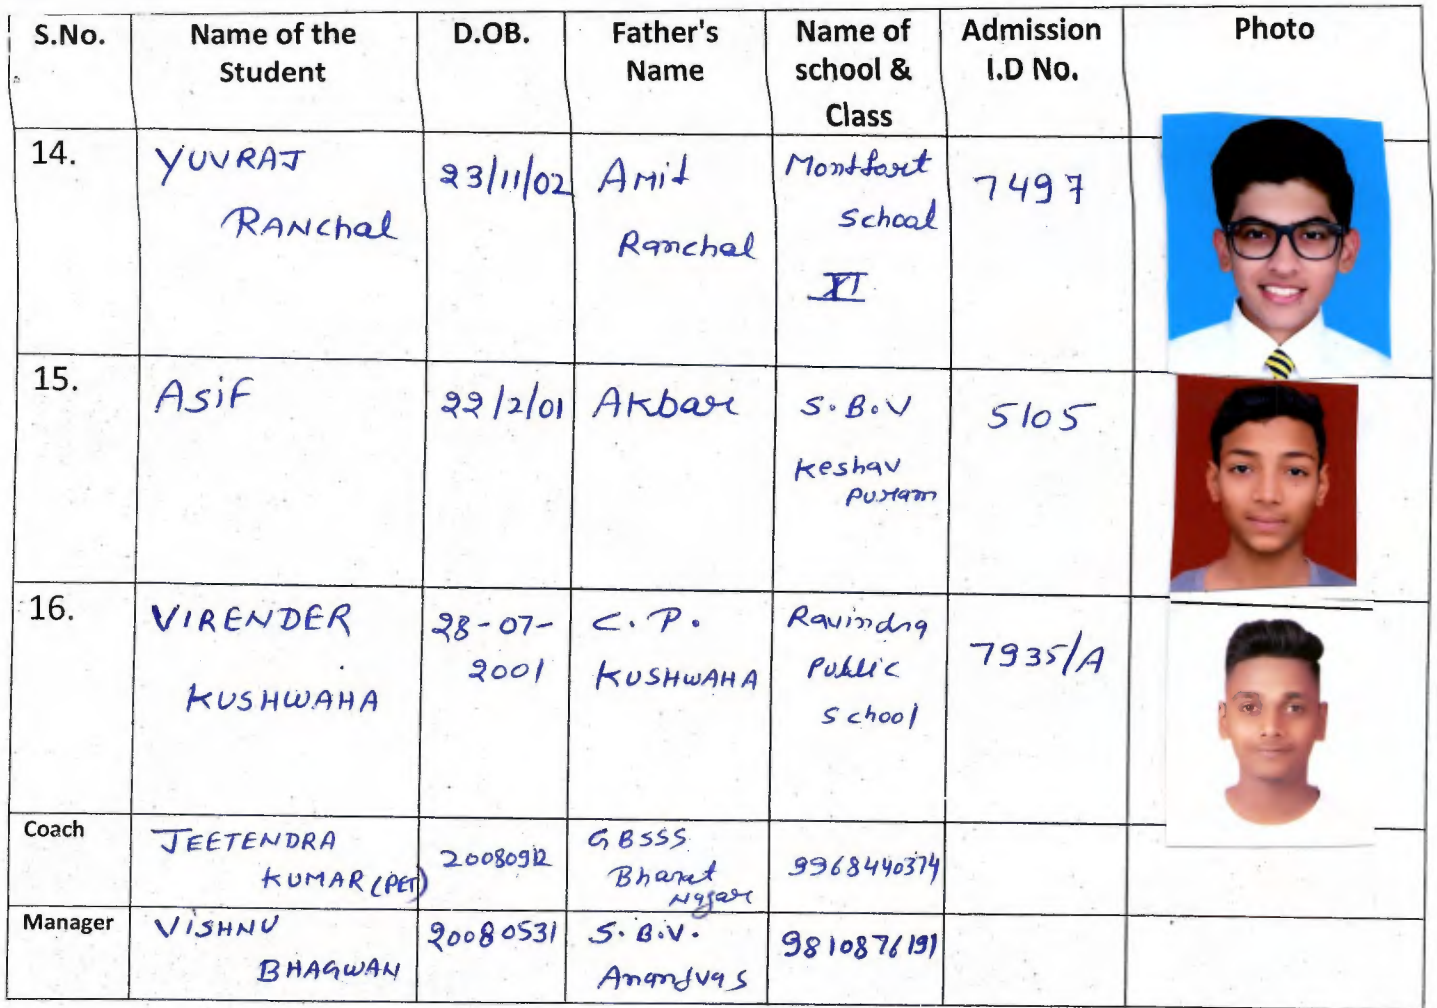 S.No. Name of the Student D.OB. Father's Name Name of school & Class Admission I.D No. Photo
14. YUVRAJ RANChal 23/11/02 Amit Ranchal Montfort School XI 7497
15. Asif 22/2/01 Akbar S.B.V Keshav Puram 5105
16. VIRENDER KUSHWAHA 28-07-2001 C.P. KUSHWAHA Ravindra Public School 7935/A
Coach JEETENDRA KUMAR (PET) 20080912 GBSSS Bharat Nagar 9968440374
Manager VISHNU BHAGWAN 20080531 S.B.V. Anandvas 9810876191